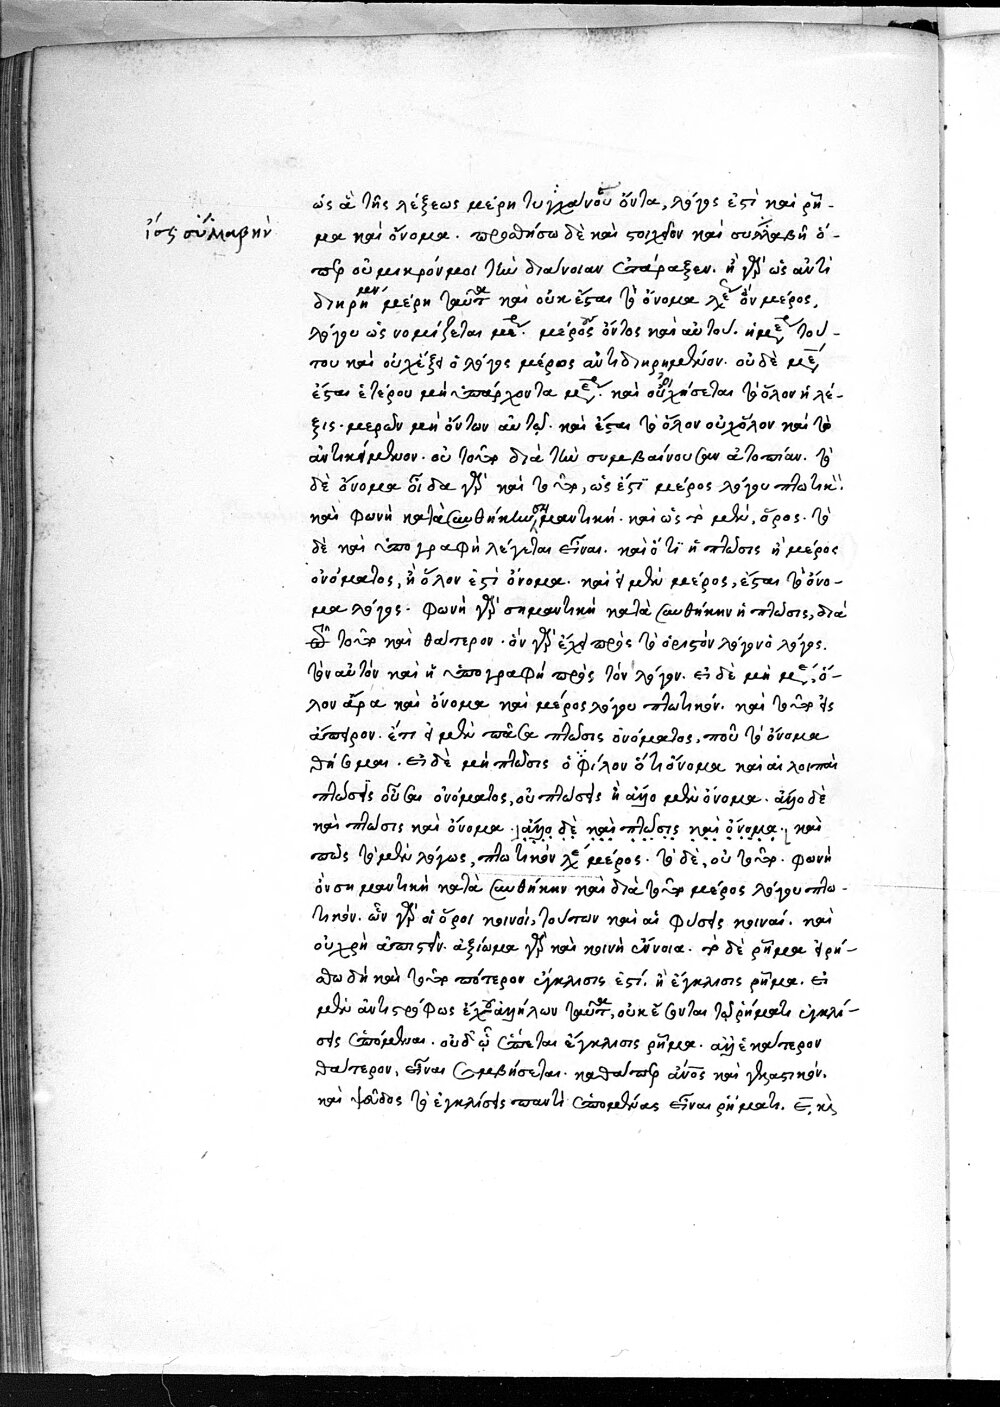 ὡς ἃ τῆς λέξεως μέρη τυγχάνου ὄντα, λόγος ἐστὶ καὶ ῥῆ-
ἴσς συλλαβὴν
μα καὶ ὄνομα. προσθήσω δὲ καὶ στοιχεῖον καὶ συλλαβὴ ὅ-
περ οὐ μικρόν μοι τὴν διάνοιαν ἐσπάραξεν. ἢ γὰρ ὡς ἀντι
διηρημέν μέρη ταῦτα καὶ οὐκ ἔσται τὸ ὄνομα ὂν μέρος,
λόγου ὡς νομίζεται μέρος ὄντος καὶ αὐτοῦ. τού-
του καὶ οὐ λέξει ὁ λόγος μέρους ἀντιδιῃρημένον. οὐδὲ
ἔσται ἑτέρου μὴ ὑπάρχοντα καὶ οἰχήσεται τὸ ὅλον ἡ λέ-
ξις. μερῶν μὴ ὄντων αὐτῷ. καὶ ἔσται τὸ ὅλον οὐχ ὅλον καὶ τὸ
ἀντικείμενον. οὐ τοῦτο διὰ τὴν συμβαίνουσαν ἀτοπίαν. τὸ
δὲ ὄνομα οἶδα γὰρ καὶ τοῦτο, ὡς ἐστὶ μέρος λόγου πτωτικὸν.
καὶ φωνὴ κατὰ συνθήκην σημαντική. καὶ ὡς τὸ μὲν, ὅρος. τὸ
δὲ καὶ ὑπογραφὴ λέγεται εἶναι. καὶ ὅτι ἡ πτῶσις ἢ μέρος
ὀνόματος, ἢ ὅλον ἐστὶ ὄνομα. καὶ εἰ μὲν μέρος, ἔσται τὸ ὄνο-
μα λόγος. φωνὴ γὰρ σημαντικὴ κατὰ συνθήκην ἡ πτῶσις, διὰ
τοῦτο καὶ θάτερον. ὃν γὰρ ἔχει πρὸς τὸ ὁριστὸν λόγον ὁ λόγος.
τὸν αὐτὸν καὶ ἡ ὑπογραφὴ πρὸς τὸν λόγον. εἰ δὲ μὴ ὅ-
λον ἄρα καὶ ὄνομα καὶ μέρος λόγου πτωτικόν. καὶ τοῦτο εἰς
ἄπειρον. ἔτι εἰ μὲν πᾶσα πτῶσις ὀνόματος, ποῦ τὸ ὄνομα
θήσομαι. εἰ δὲ μὴ πτῶσις ὁ φίλον ὅτι ὄνομα καὶ αἱ λοιπαὶ
πτώσεις οὖσαι ὀνόματος, οὐ πτώσεις ἢ ἄλλο μὲν ὄνομα. ἄλλο δὲ
καὶ πτῶσις καὶ ὄνομα. ἄλλο δὲ καὶ πτῶσις καὶ ὄνομα. καὶ
πῶς τὸ μὲν λόγως, πτωτικὸν μέρος. τὸ δὲ, οὐ τοῦτο. φωνὴ
ὂν σημαντικὴ κατὰ συνθήκην καὶ διὰ τοῦτο μέρος λόγου πτω-
τικόν. ὧν γὰρ οἱ ὅροι κοινοὶ, τούτων καὶ αἱ φύσεις κοιναί. καὶ
οὐ χρὴ ἀπιστεῖν. ἀξίωμα γὰρ καὶ κοινὴ ἔννοια. τὸ δὲ ῥῆμα εἰρή-
σθω δὴ καὶ τοῦτο πότερον ἔγκλισις ἐστὶ. ἢ ἔγκλισις ῥῆμα. εἰ
μὲν ἀντιστρόφως ἀλλήλων ταῦτα, οὐκ ἔσονται τῷ ῥήματι ἐγκλί-
σεις ἑπόμεναι. οὐδ' ᾧ ἕπεται ἔγκλισις ῥῆμα. ἀλλ' ἑκάτερον
θάτερον, εἶναι συμβήσεται. καθάπερ ἄνος καὶ γελαστικόν.
καὶ ψεῦδος τὸ ἐγκλίσεις παντὶ ἑπομένας εἶναι ῥήματι.